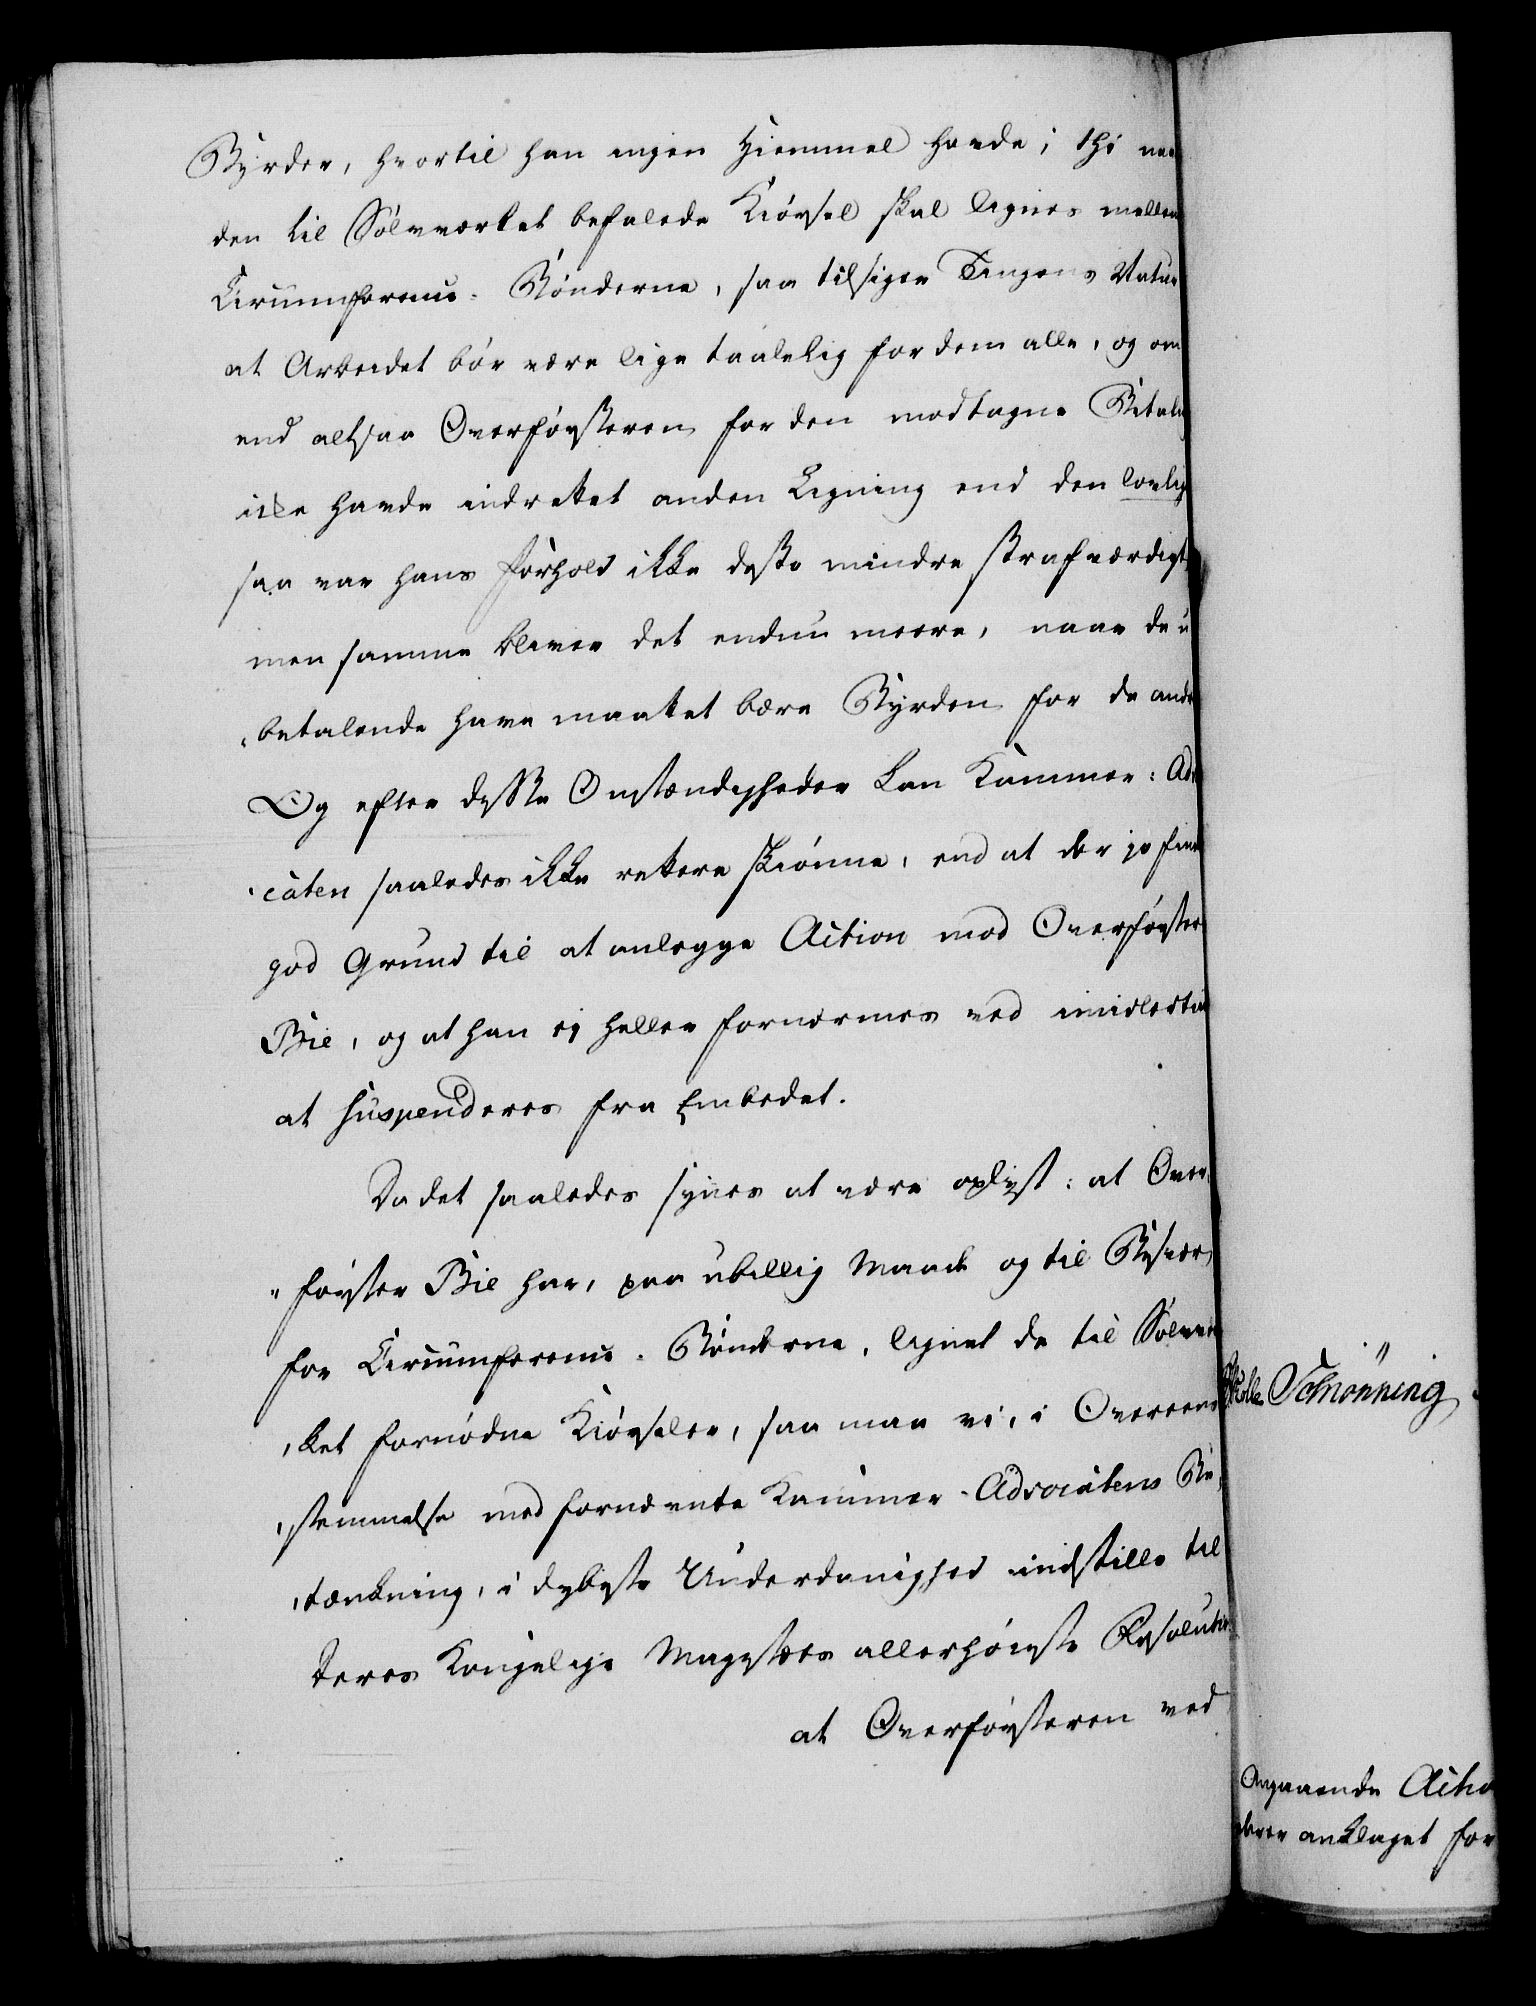 Byrder, hvortil han ingen Hiemmel havde; thi naar
den til Sølvværket befalede Kiørsel skal lignes mellem
Circumference-Bønderne, saa tilsiger Tingens Natur
at Arbeidet bør være lige taalelig for dem alle, og om
end altsaa Overførsteren for den modtagne Betaling
ikke havde indrettet anden Ligning end den lovlig
saa var hans Forhold ikke desto mindre strafværdigt
men samme bliver det endnu meere, naar de u
„betalende have maattet bære Byrden for de andre
Og efter disse Omstændigheder kan Kammer-Advo
„caten saaledes ikke rettere skiønne, end at der jo findes
god Grund til at anlegge Action mod Overførster
Bie, og at han ej heller fornærmes ved imidlertid
at suspenderes fra Embedet.
Da det saaledes synes at være oplyst: at Over
„førster Bie har, paa ubillig Maade og til Besvær
for Circumference-Bønderne, lignet de til Sølvvær
„ket fornødne Kiørseler, saa maa vi, i Overeens
„stemmelse med fornævnte Kammer-Advocatens Be
„tænkning, i dybeste Underdanighed indstille til
Deres Kongelige Majestæts allerhøieste Resolution
at Overførsteren ved
Schrønning
Angaaende Actio
anklaget for